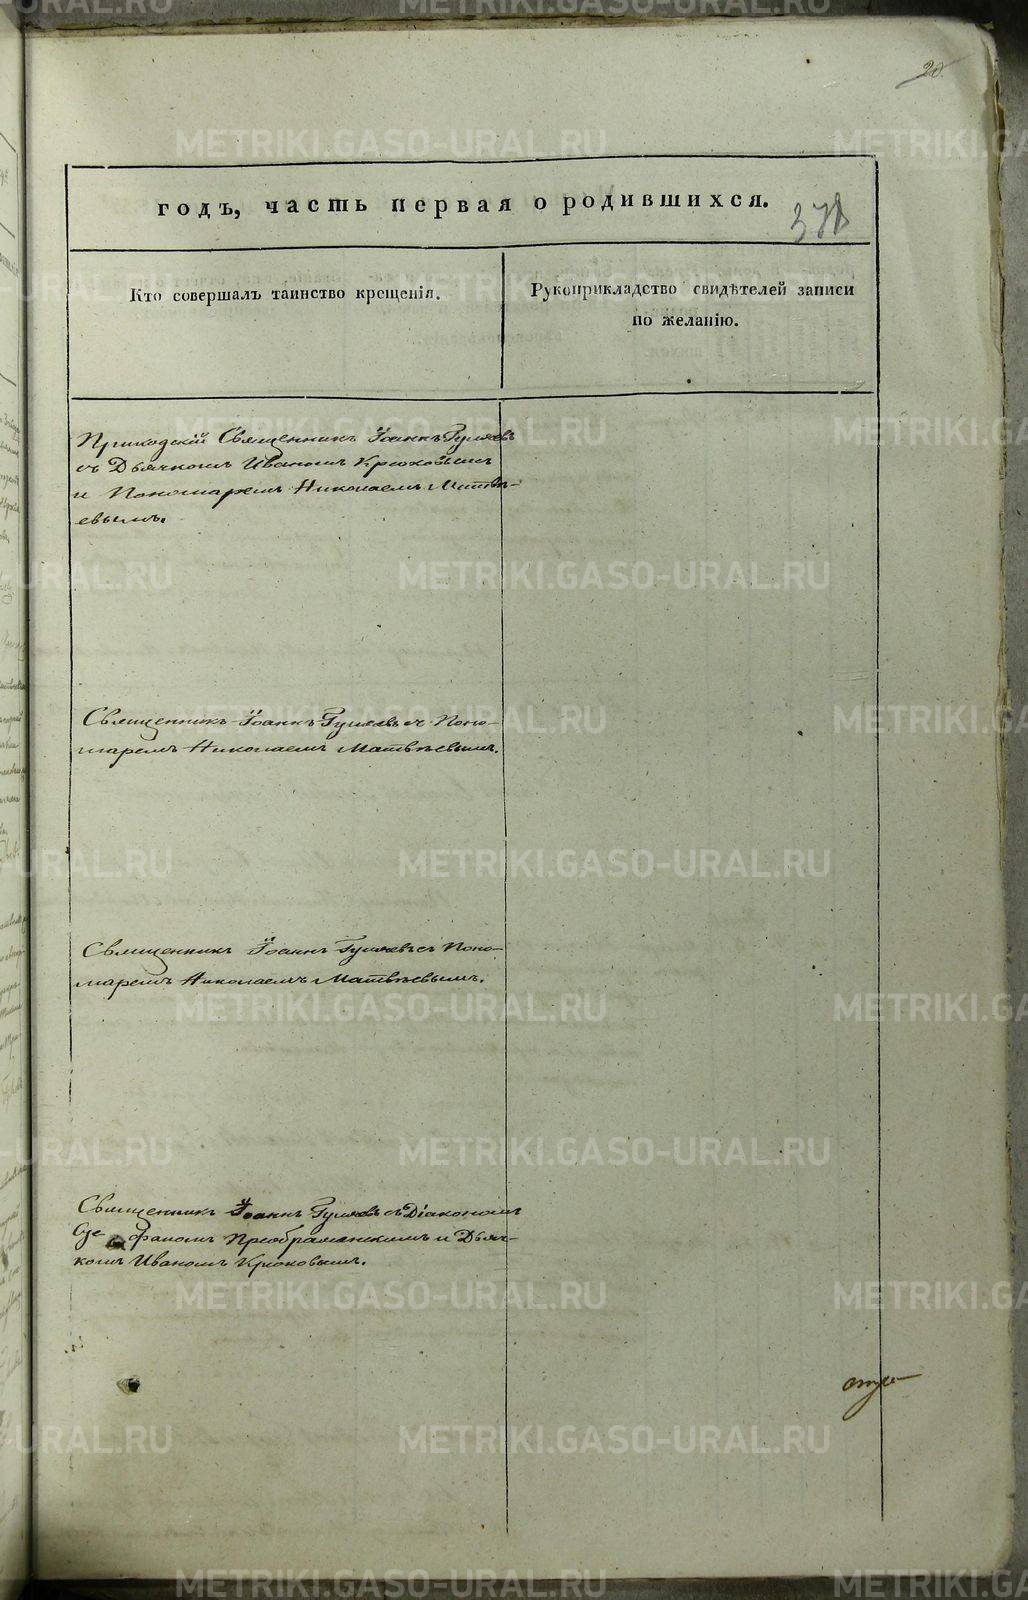 20.
годъ, часть первая о родившихся.
378
Кто совершалъ таинство крещенія.
Рукоприкладство свидѣтелей записи
по желанію.
Приходскій Священникъ Іоаннъ Гуляевъ
съ Дьячкомъ Иваномъ Крюковымъ
и Пономаремъ Николаемъ Матвѣ-
евымъ.
Священникъ Іоаннъ Гуляевъ съ Поно-
маремъ Николаемъ Матвѣевымъ.
Священникъ Іоаннъ Гуляевъ съ Поно-
маремъ Николаемъ Матвѣевымъ.
Священникъ Іоаннъ Гуляевъ съ Діакономъ
фаномъ Преображенскимъ и Дьяч-
комъ Иваномъ Крюковымъ.
METRIKI.GASO-URAL.RU